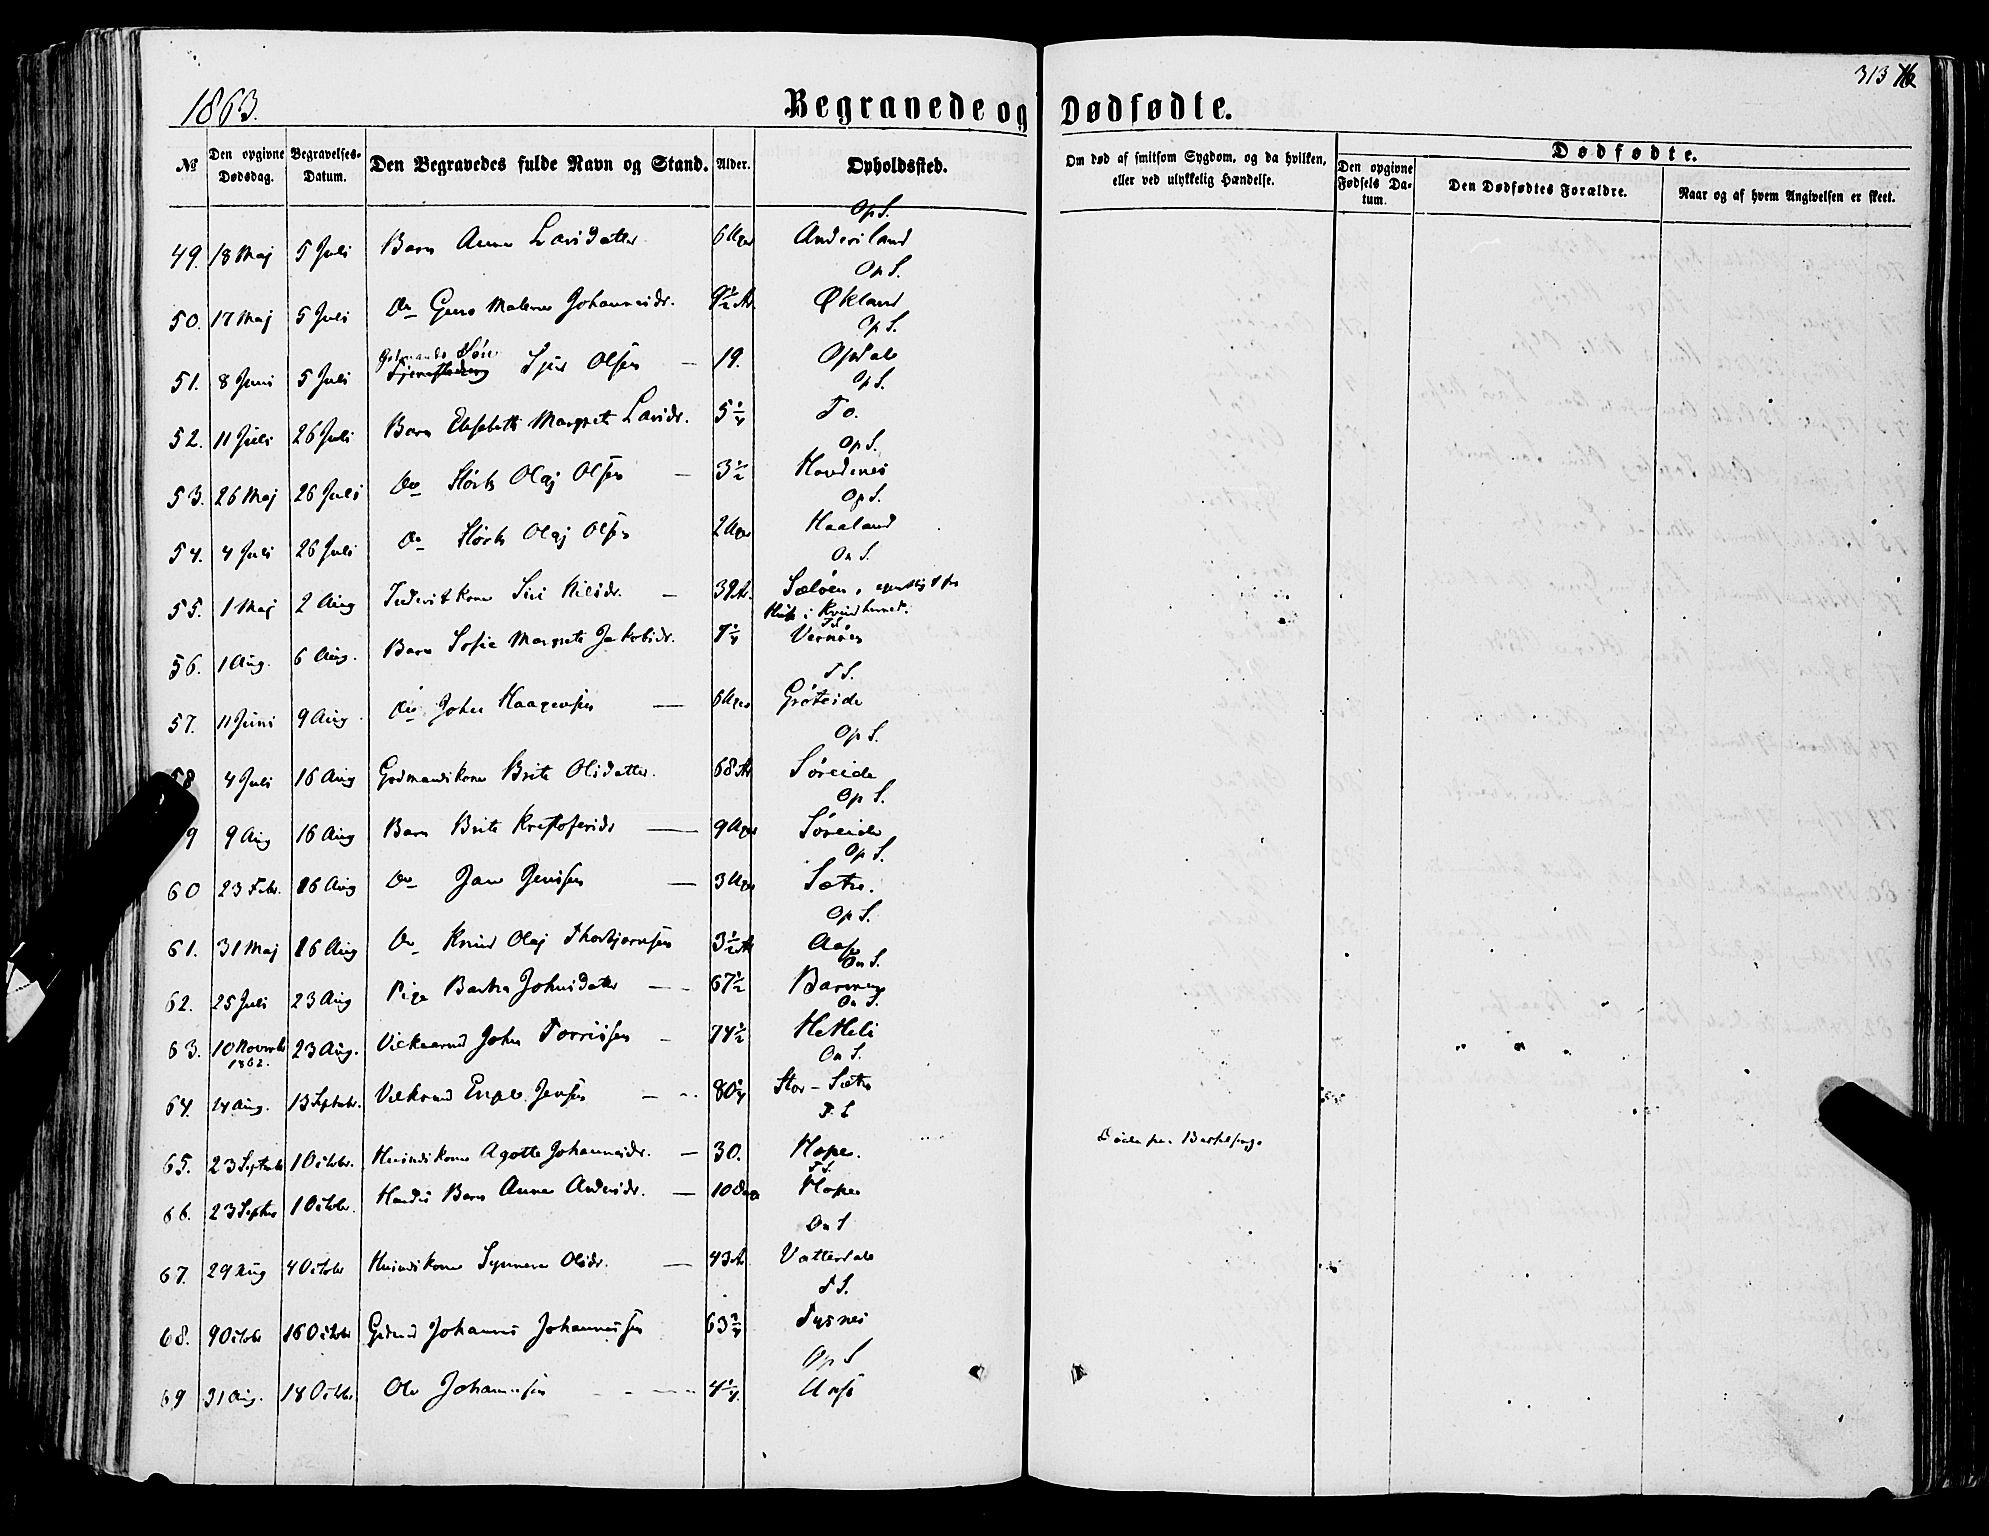 1863.
Begravede og Dødfødte.
313
№
Den opgivne Dødsdag.
Begravelses-Datum.
Den Begravedes fulde Navn og Stand.
Alder.
Opholdssted.
Om død af smitsom Sygdom, og da hvilken, eller ved ulykkelig Hændelse.
Dødfødte.
Den opgivne Fødsels Datum.
Den Dødfødtes Forældre.
Naar og af hvem Angivelsen er skeet.
Op S.
49. 18 Maj 5 Juli Barn Anna Larsdatter 6 Uger Andersland
Op S.
50. 17 Maj 5 Juli Do Guro Malene Johannesdr. 9½ Ar Økland
Op S.
51. 8 Juni 5 Juli Søn Sjur Olsen — 19. Opdal
Op S.
52. 11 Juli 26 Juli Barn Elisabeth Margrete Larsdr. 5¼ To.
Op S.
53. 26 Maj 26 Juli Do Størk Olaj Olsen — 3½ Hovdenes
Op S.
54. 4 Juli 26 Juli Do Størk Olaj Olsen 2 Uger Haaland
On S.
55. 1 Maj 2 Aug Inderstkone Siri Nilsdr. — 39 Ar. Seløen,
i Kvindherred.
T S.
56. 1 Aug. 6 Aug. Barn Sofie Margrete Jakobsdr. 7¼ Vernøen
T S.
57. 11 Juni 9 Aug. Do John Haagensen — 6 Uger Grøteide
Op S.
58 4 Juli 16 Aug Gaardmandskone Brite Olsdatter. 68 Ar Søreide
Op S.
9 9 Aug 16 Aug Barn Brite Kristofersdr — 9 Uger Søreide
Op S.
60 23 Febr. 16 Aug Do Jan Jensen — 3 Uger Sætre.
Op S.
61. 31 Maj 16 Aug Do Knud Olaj Thorbjørnsen 3½ Ar Aase
On S.
62. 25 Juli 23 Aug Pige Barbra Johnsdatter — 67½
On S.
63. 10 Novembr 1862. 23 Aug. Vilkaarmd John Torrissen — 74½ Hetleli
On S.
64. 14 Aug. 13 Septebr. Vilkrmd Engel Jensen — 80¼ Stor-Sætre
T. S
65. 23 Septebr 1 Octobr. Huusmdskone Agotte Johannesdr. — 30. Hope. Døde paa Barselseng.
T S.
66. 23 Septbr 1 Octobr. Hendes Barn Anna Andersdr. — 10 Dage Hope
On S
67. 29 Aug 4 Octobr Huusmdskone Synneve Olsdr. — 43 Ar Vatterdal
T S.
68. 9 Octobr 16 Octobr Gdmd Johannes Johannessen 63¾ Tysnes
Op S
69 31 Aug. 18 Octobr Ole Johannessen 4¼ Aase